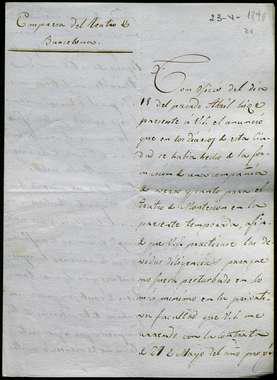 Empresa del Teatro de
Barcelona.
23-V-1840
Con oficio del dia
18 del pasado Abril hize
presente a V.S. el anuncio
que en los diarios de esta Ciu-
dad se habia hecho de la for-
macion de una compañia
de verso y canto para el
teatro de Montesion en la
presente temporada, afin
de que V.S. practicase las de-
vidas diligencias para que
no fuera perturbado en lo
mas minimo en la privati-
va facultad que V.S. me
arrendó con la contrata
de 27 de Mayo del año pro